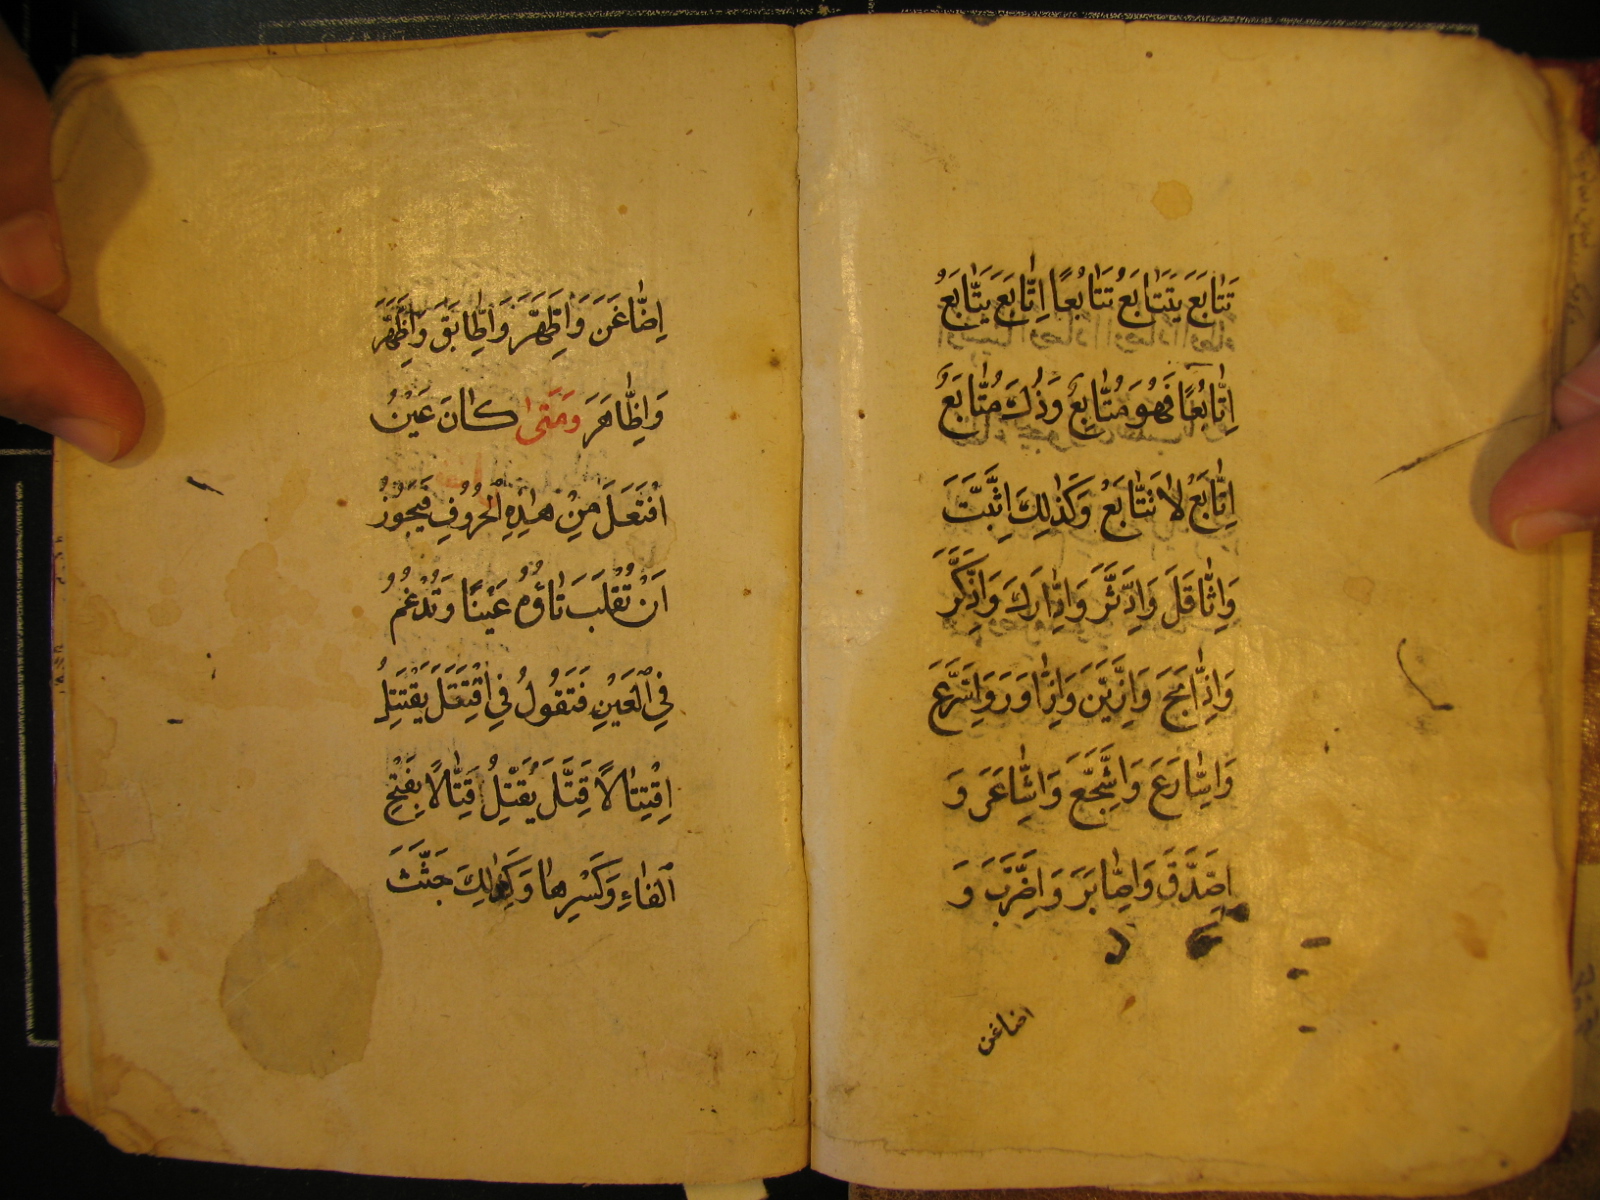 تَتَابَعَ يَتَتَابَعُ تَتَابُعًا اِتَّابَعَ يَتَّابَعُ
اِتَّابُعًا فَهُوَ مُتَّابِعٌ وَذٰلِكَ مُتَّابَعٌ
اِتَّابَعْ لَا تَتَّابَعْ وَكَذٰلِكَ اِثَّبَّتَ
وَاِثَّاقَلَ وَاِدَّثَّرَ وَاِدَّارَكَ وَاِذَّكَّرَ
وَاِذَّامَجَ وَاِزَّيَّنَ وَاِزَّاوَرَ وَاِسَّرَّعَ
وَاِسَّارَعَ وَاِشَّجَّعَ وَاِشَّاعَرَ وَ
اِصَّدَّقَ وَاِصَّابَرَ وَاِضَّرَّبَ وَ
اضاغن
اِضَّاغَنَ وَاِظَّهَّرَ وَاِطَّابَقَ وَاِظَّهَّرَ
وَاِظَّاهَرَ وَمَتٰى كَانَ عَيْنُ
افْتَعَلَ مِنْ هٰذِهِ الْحُرُوفِ فَيَجُوزُ
اَنْ تُقْلَبَ تَاؤُهُ عَيْنًا وَتُدْغَمُ
فِي الْعَيْنِ فَتَقُولُ فِي اقْتَتَلَ يَقْتَتِلُ
اِقْتِتَالًا قَتَّلَ يَقَتِّلُ قِتَّالًا بِفَتْحِ
الْفَاءِ وَكَسْرِهَا وَكَذٰلِكَ